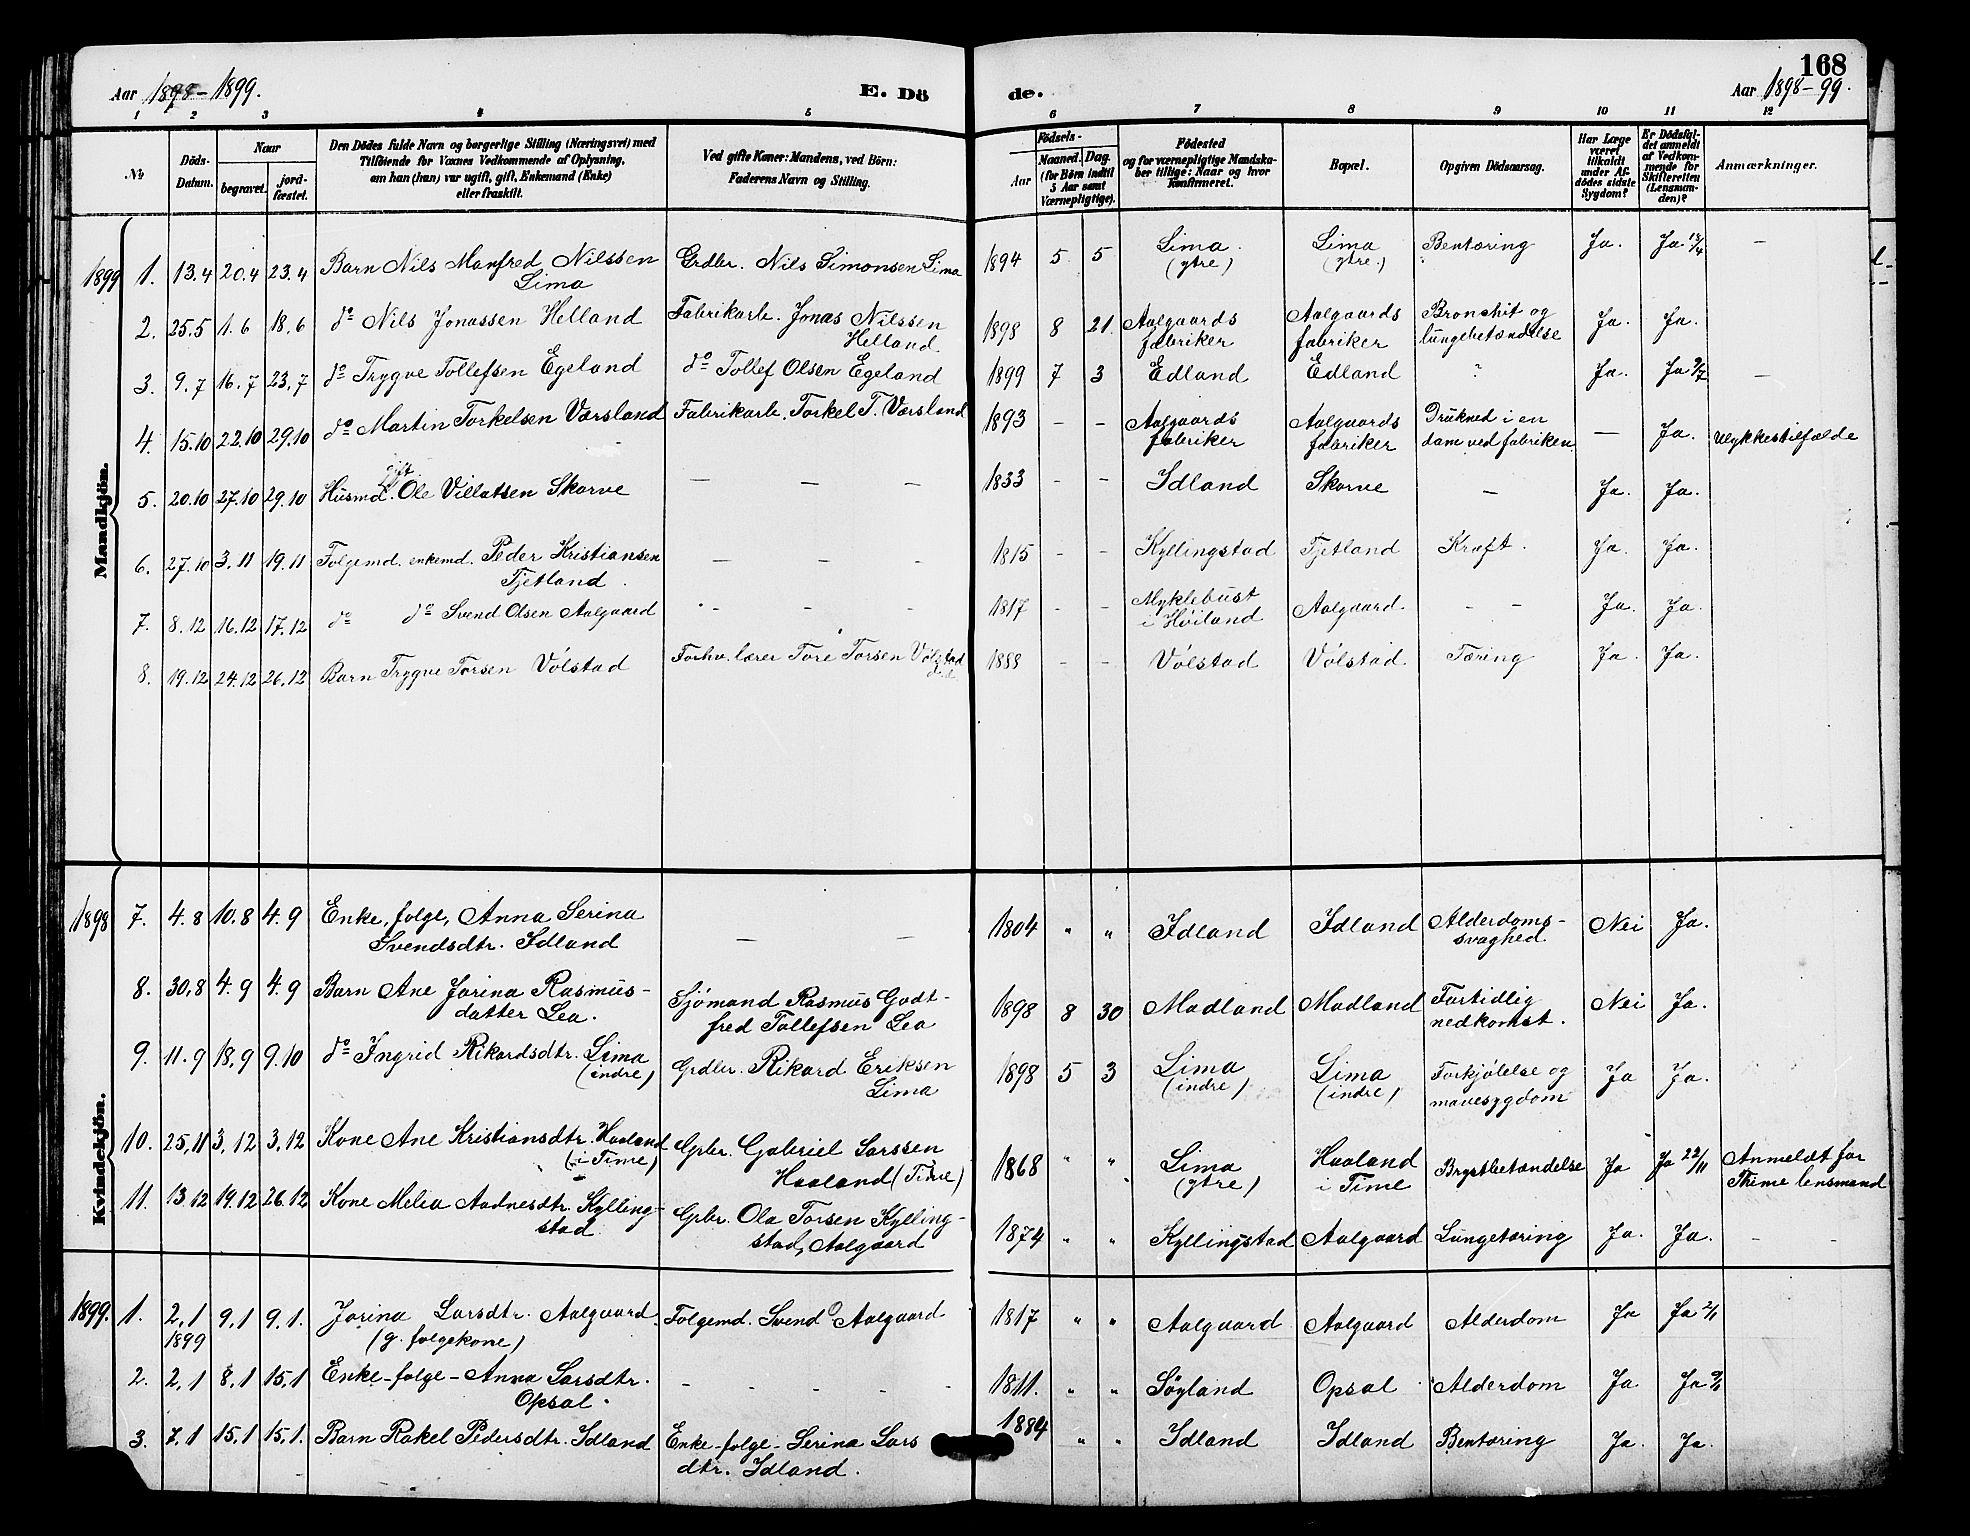 168
Aar 1898-1899. E. Dö de. Aar 1898-99.
1 2 3 4 5 6 7 8 9 10 11 12
No
Döds-Datum.
Naar
begravet. jord-fæstet.
Den Dödes fulde Navn og borgerlige Stilling (Næringsvei) med
Tilföiende for Voxnes Vedkommende af Oplysning,
om han (hun) var ugift, gift, Enkemand (Enke)
eller fraskilt.
Ved gifte Koner: Mandens, ved Börn:
Faderens Navn og Stilling.
Födsels-
Aar Maaned. Dag.
(for Börn indtil
5 Aar samt
Værnepligtige).
Födested
og for værnepligtige Mandska-
ber tillige: Naar og hvor
konfirmeret.
Bopæl.
Opgiven Dödsaarsag.
Har Læge
været
tilkaldt
under Af-
dödes sidste
Sygdom?
Er Dödsfal-
det anmeldt
af Vedkom-
mende for
Skifteretten
(Lensman-
den)?
Anmærkninger.
Mandkjön.
1899 1. 13.4 20.4 23.4 Barn Nils Manfred Nilssen Lima Grdbr. Nils Simonsen Lima 1894 5 5 Lima (ytre) Lima (ytre.) Bentæring Ja. Ja 14/4 —
2. 25.5 1.6 18.6 do Nils Jonassen Helland Fabrikarb. Jonas Nilssen Helland 1898 8 21. Aalgaards fabriker Aalgaards fabriker Bronchit og lungebetændelse Ja. Ja.
3. 9.7 16.7 23.7 do Trygve Tollefsen Egeland do Tollef Olsen Egeland 1899 7 3 Edland Edland ? Ja. Ja 9/7 —
4. 15.10 22.10 29.10 do Martin Torkelsen Værsland Fabrikarb. Torkel T. Værsland 1893 - - Aalgaards fabriker Aalgaards fabriker Drukned i en dam ved fabriken — Ja. Ulykkestilfælde
5. 20.10 27.10 29.10 Husmd. gift Ole Villatsen Skorve — — — 1833 - - Idland Skorve — Ja. Ja.
6. 27.10 3.11 19.11 Folgemd. enkemd. Peder Kristiansen Tjetland. — — — 1815 - - Kyllingstad Tjetland Kræft. Ja. Ja.
7. 8.12 16.12 17.12 do do Svend Olsen Aalgaard - - - 1817 - - Myklebust i Høiland Aalgaard. - - Ja. Ja.
8. 19.12 24.12 26.12 Barn Trygve Torsen Vølstad Forhv. lærer Tore Torsen Vølstad 1888 - - Vølstad Vølstad. Tæring Ja. Ja.
Kvindekjön.
1898 7. 4.8 10.8 4.9 Enke, folge, Anna Serina Svendsdtr. Idland — — 1804 " " Idland Idland Alderdoms-svaghed. Nei Ja.
8. 30.8 4.9 4.9 Barn Ane Jorina Rasmus-datter Lea. Sjømand Rasmus Godt-fred Tollefsen Lea 1898 8 30 Madland Madland Fortidlig nedkomst. Nei Ja.
9. 11.9 18.9 9.10 do Ingrid Rikardsdtr. Lima (indre) Grdbr. Rikard Eriksen Lima 1898 5 3 Lima (indre) Lima (indre) Forkjølelse og mavesygdom Ja Ja.
10. 25.11 3.12 3.12 Kone Ane Kristiansdtr. Haaland (i Time) Grbr. Gabriel Larssen Haaland (Time) 1868 " " Lima (ytre) Haaland i Time Brystbetændelse Ja Ja 22/11 Anmeldt for Thime lensmand
11. 13.12 19.12 26.12 Kone Melea Aadnesdtr. Kylling-stad. Grbr. Ola Torsen Kylling-stad, Aalgaard 1874 " " Kyllingstad Aalgaard Lungetæring Ja. Ja. - -
1899. 1. 2.1 1899 9.1 9.1. Jorina Larsdtr. Aalgaard. (g. folgekone) Folgemd. Svend O Aalgaard 1817 " " Aalgaard Aalgaard Alderdom Ja Ja 2/1
2. 2.1 8.1 15.1 Enke-folge-Anna Larsdtr. Opsal. - - - - - 1811. " " Søyland Opsal Alderdom Ja Ja
3. 7.1 15.1 15.1. Barn Rakel Pedersdtr. Idland Enke-folge-Serina Lars dtr. Idland. 1884 " " Idland Idland Bentæring Ja. Ja.